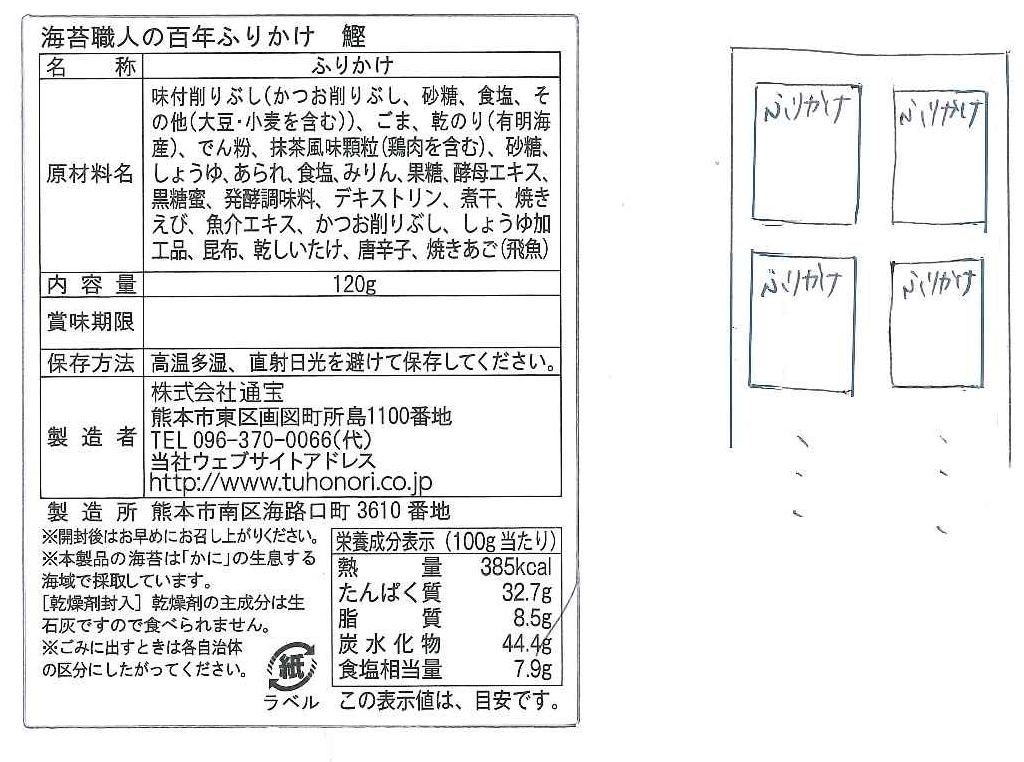 海苔職人の百年ふりかけ 鰹
名称 ふりかけ
原材料名 味付削りぶし(かつお削りぶし、砂糖、食塩、その他(大豆・小麦を含む))、ごま、乾のり(有明海産)、でん粉、抹茶風味顆粒(鶏肉を含む)、砂糖、しょうゆ、あられ、食塩、みりん、果糖、酵母エキス、黒糖蜜、発酵調味料、デキストリン、煮干、焼きえび、魚介エキス、かつお削りぶし、しょうゆ加工品、昆布、乾しいたけ、唐辛子、焼きあご(飛魚)
内容量 120g
賞味期限
保存方法 高温多湿、直射日光を避けて保存してください。
製造者 株式会社通宝
熊本市東区画図町所島1100番地
TEL 096-370-0066(代)
当社ウェブサイトアドレス
http://www.tuhonori.co.jp
製造所 熊本市南区海路口町 3610 番地
※開封後はお早めにお召し上がりください。
※本製品の海苔は「かに」の生息する
海域で採取しています。
[乾燥剤封入] 乾燥剤の主成分は生
石灰ですので食べられません。
※ごみに出すときは各自治体
の区分にしたがってください。
紙
ラベル
栄養成分表示 (100g 当たり)
熱量 385kcal
たんぱく質 32.7g
脂質 8.5g
炭水化物 44.4g
食塩相当量 7.9g
この表示値は、目安です。
ふりかけ
ふりかけ
ふりかけ
ふりかけ